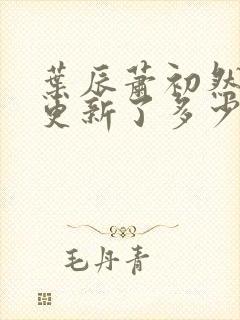 葉辰蕭初然
更新了多少
毛丹青